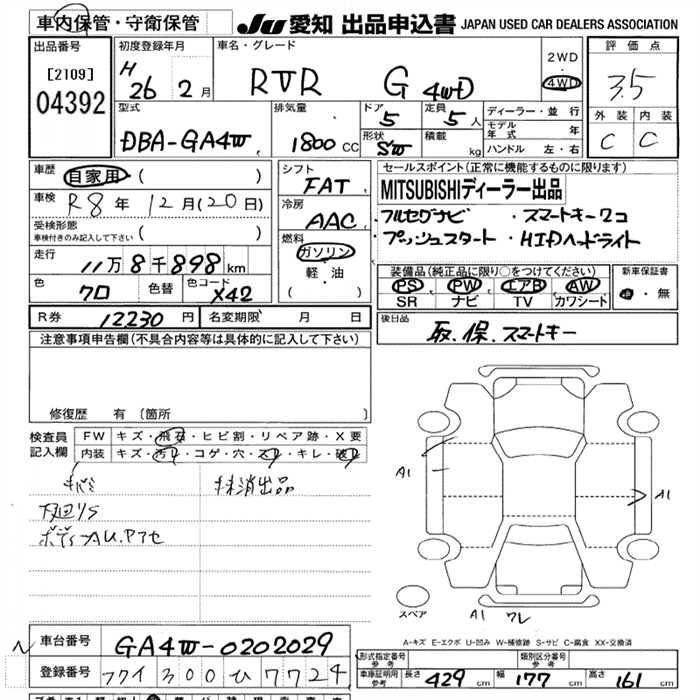 車内保管・守衛保管
JU 愛知 出品申込書 JAPAN USED CAR DEALERS ASSOCIATION
出品番号
[2109]
04392
初度登録年月
H 26 年 2 月
車名・グレード
RVR G 4WD
2WD
・
4WD
評価点
3.5
外装 内装
C C
型式
DBA-GA4W
排気量
1800 CC
ドア
5
形状
SW
定員
5 人
積載
kg
ディーラー・並行
モデル年式 年
ハンドル 左・右
車歴
自家用 ( )
車検
R8 年 12 月 (20 日)
受検形態
車検付きのみ記入して下さい ( )
走行
11万 8千 898 km
色
クロ
色替
色コード
X42
シフト
FAT
冷房
AAC
燃料
ガソリン
軽・油
( )
セールスポイント(正常に機能するものに限ります)
MITSUBISHIディーラー出品
・フルセグナビ ・スマートキー2コ
・プッシュスタート ・HIDヘッドライト
装備品(純正品に限り○をつけてください)
PS PW エアB AW
SR ナビ TV カワシート
新車保証書
有・無
R券 12230 円
名変期限 月 日
後日品
取.保.スマートキー
注意事項申告欄(不具合内容等は具体的に記入して下さい)
修復歴 有 〔箇所 〕
検査員記入欄
FW キズ・飛石・ヒビ割・リペア跡・X要
内装 キズ・汚れ・コゲ・穴・スレ・キレ・破れ
抹消出品
下回りS
ボディーAU.P7セ
A1
A1
スペア
A1
ワレ
A-キズ E-エクボ U-凹み W-補修跡 S-サビ C-腐食 XX-交換済
車台番号 GA4W-0202029
登録番号 フクイ 300 ひ 7724
形式指定番号
参考
類別区分番号
参考
車庫証明用
参考
長さ 429 cm 幅 177 cm 高さ 161 cm